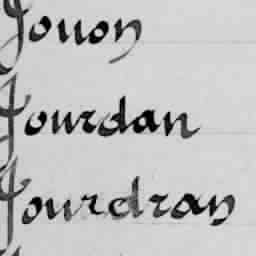 Jouon
Jourdan
Jourdran